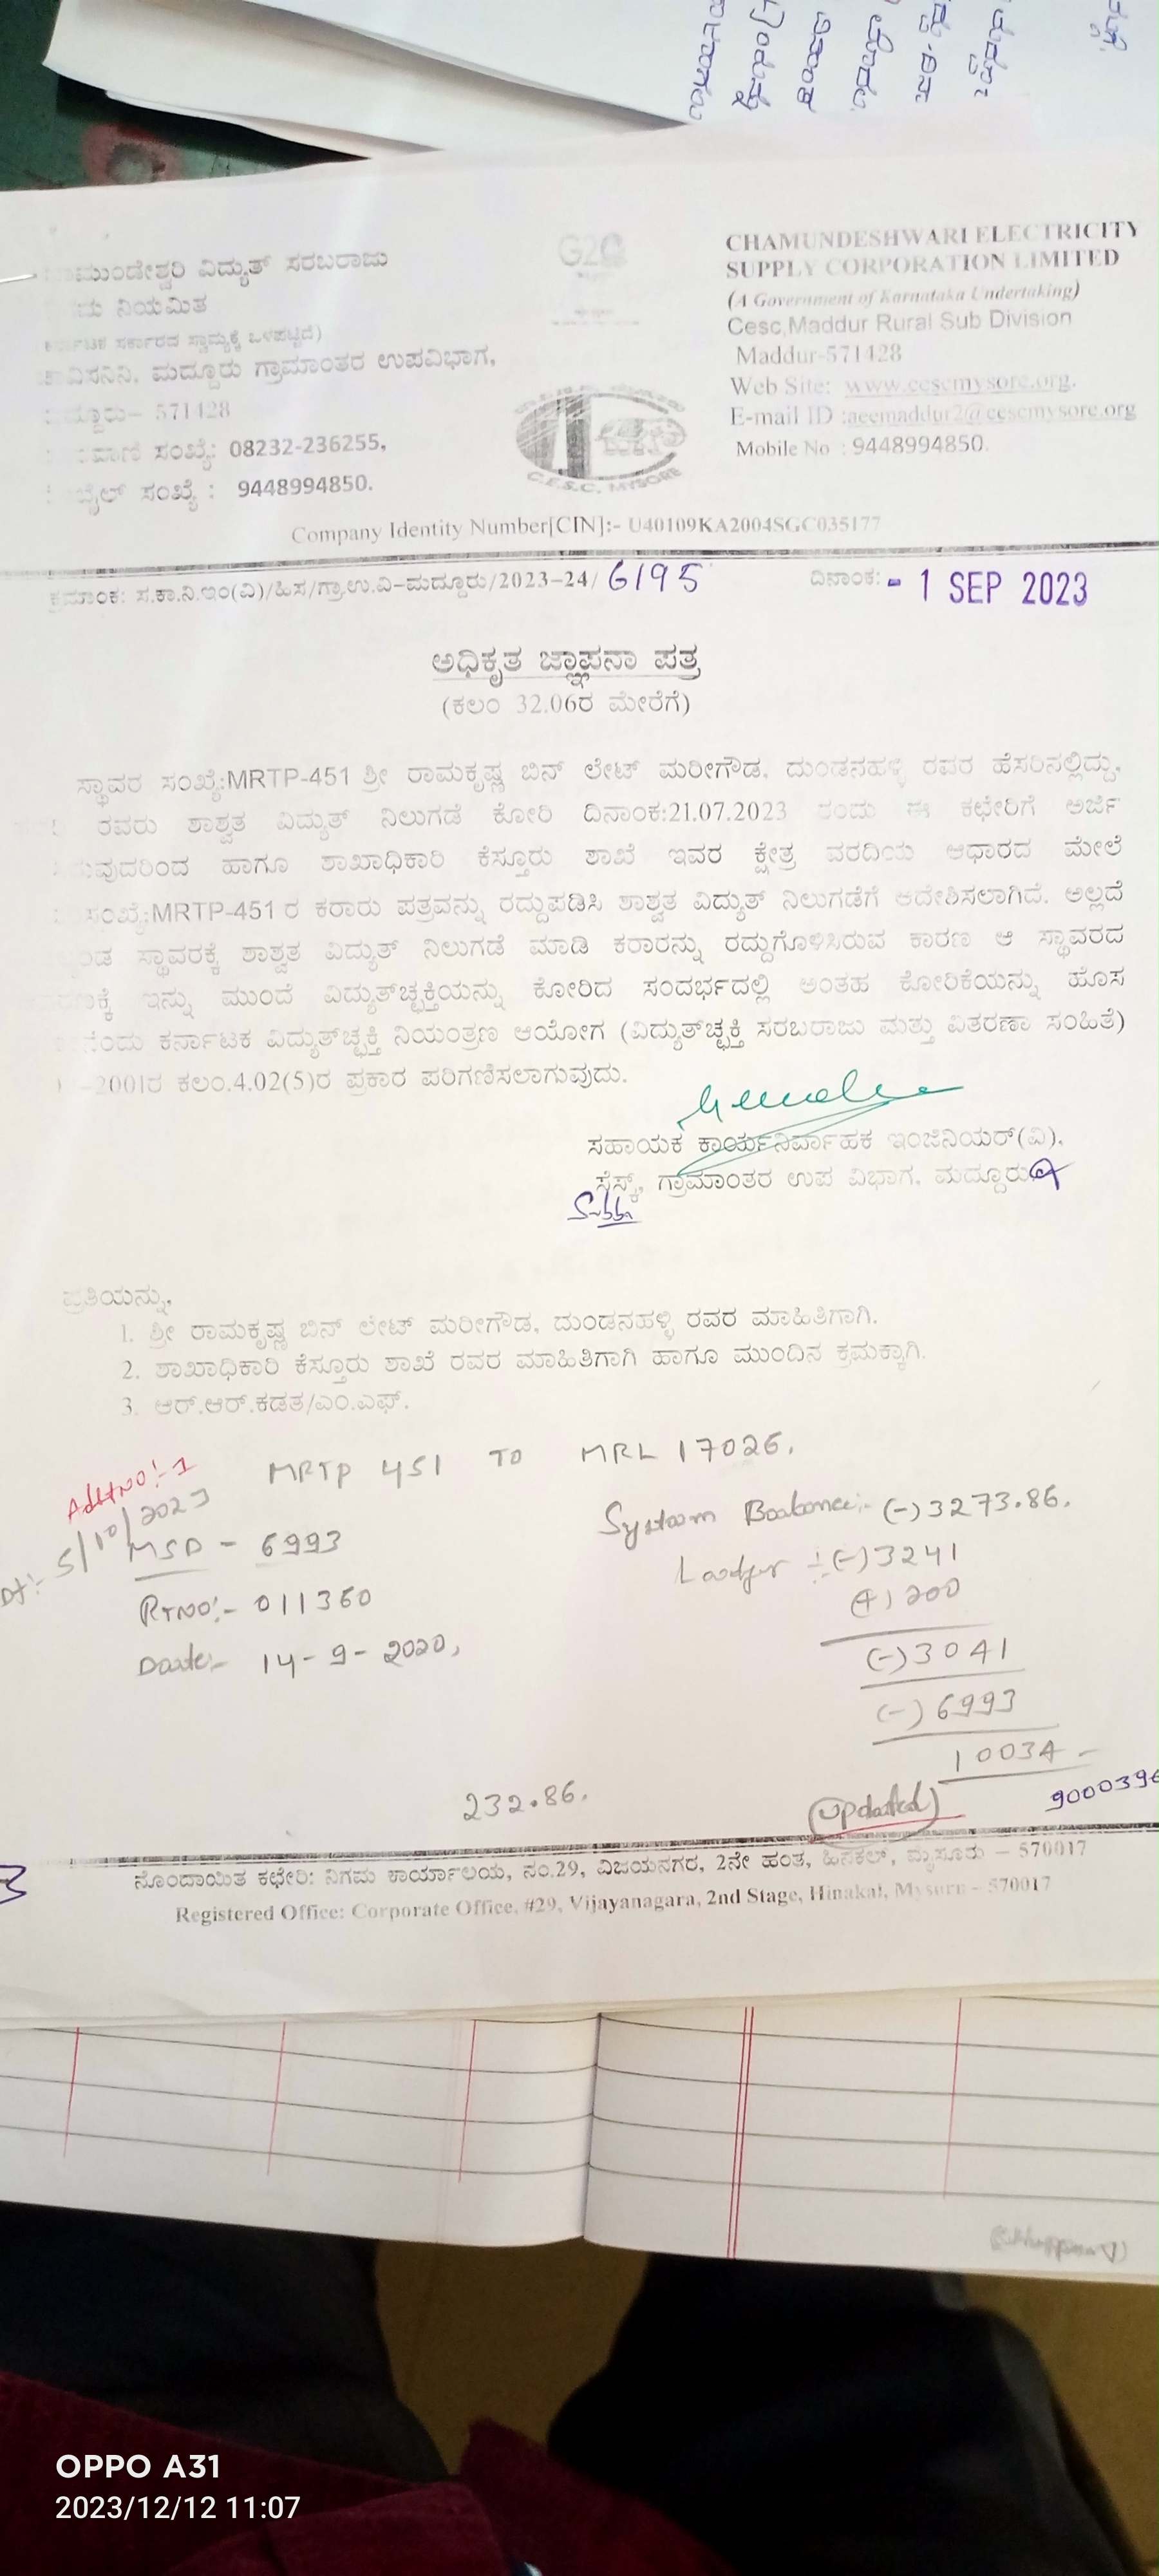 ಮುಂಡೇಶ್ವರಿ ವಿದ್ಯುತ್ ಸರಬರಾಜು
ನಿಯಮಿತ
ಸರ್ಕಾರದ ಸ್ವಾಮ್ಯಕ್ಕೆ ಒಳಪಟ್ಟಿದೆ)
ವಿಸನಿನಿ, ಮದ್ದೂರು ಗ್ರಾಮಾಂತರ ಉಪವಿಭಾಗ,
ದ್ದೂರು– 571428
ಸಂಖ್ಯೆ: 08232-236255,
ಬೈಲ್ ಸಂಖ್ಯೆ : 9448994850.
G20
C.E.S.C. MYSORE
CHAMUNDESHWARI ELECTRICITY
SUPPLY CORPORATION LIMITED
(A Government of Karnataka Undertaking)
Cesc,Maddur Rural Sub Division
Maddur-571428
Web Site: www.cescmysore.org.
E-mail ID :aeemaddur2@cescmysore.org
Mobile No : 9448994850.
Company Identity Number[CIN]:- U40109KA2004SGC035177
ಕ್ರಮಾಂಕ: ಸ.ಕಾ.ನಿ.ಇಂ(ವಿ)/ಹಿಸ/ಗ್ರಾ.ಉ.ವಿ–ಮದ್ದೂರು/2023–24/ 6195 ದಿನಾಂಕ: - 1 SEP 2023
ಅಧಿಕೃತ ಜ್ಞಾಪನಾ ಪತ್ರ
(ಕಲಂ 32.06ರ ಮೇರೆಗೆ)
ಸ್ಥಾವರ ಸಂಖ್ಯೆ:MRTP-451 ಶ್ರೀ ರಾಮಕೃಷ್ಣ ಬಿನ್ ಲೇಟ್ ಮರೀಗೌಡ, ದುಂಡನಹಳ್ಳಿ ರವರ ಹೆಸರಿನಲ್ಲಿದ್ದು,
ರವರು ಶಾಶ್ವತ ವಿದ್ಯುತ್ ನಿಲುಗಡೆ ಕೋರಿ ದಿನಾಂಕ:21.07.2023 ರಂದು ಈ ಕಛೇರಿಗೆ ಅರ್ಜಿ
ಹಾಗೂ ಶಾಖಾಧಿಕಾರಿ ಕೆಸ್ತೂರು ಶಾಖೆ ಇವರ ಕ್ಷೇತ್ರ ವರದಿಯ ಆಧಾರದ ಮೇಲೆ
ಸಂಖ್ಯೆ:MRTP-451 ರ ಕರಾರು ಪತ್ರವನ್ನು ರದ್ದುಪಡಿಸಿ ಶಾಶ್ವತ ವಿದ್ಯುತ್ ನಿಲುಗಡೆಗೆ ಆದೇಶಿಸಲಾಗಿದೆ. ಅಲ್ಲದೆ
ಸ್ಥಾವರಕ್ಕೆ ಶಾಶ್ವತ ವಿದ್ಯುತ್ ನಿಲುಗಡೆ ಮಾಡಿ ಕರಾರನ್ನು ರದ್ದುಗೊಳಿಸಿರುವ ಕಾರಣ ಆ ಸ್ಥಾವರದ
ಇನ್ನು ಮುಂದೆ ವಿದ್ಯುತ್‌ಚ್ಛಕ್ತಿಯನ್ನು ಕೋರಿದ ಸಂದರ್ಭದಲ್ಲಿ ಅಂತಹ ಕೋರಿಕೆಯನ್ನು ಹೊಸ
ಕರ್ನಾಟಕ ವಿದ್ಯುತ್‌ಚ್ಛಕ್ತಿ ನಿಯಂತ್ರಣ ಆಯೋಗ (ವಿದ್ಯುತ್‌ಚ್ಛಕ್ತಿ ಸರಬರಾಜು ಮತ್ತು ವಿತರಣಾ ಸಂಹಿತೆ)
–2001ರ ಕಲಂ.4.02(5)ರ ಪ್ರಕಾರ ಪರಿಗಣಿಸಲಾಗುವುದು.
ಸಹಾಯಕ ಕಾರ್ಯನಿರ್ವಾಹಕ ಇಂಜಿನಿಯರ್(ವಿ),
ಸೆಸ್ಕ್, ಗ್ರಾಮಾಂತರ ಉಪ ವಿಭಾಗ, ಮದ್ದೂರು
ಪ್ರತಿಯನ್ನು,
1. ಶ್ರೀ ರಾಮಕೃಷ್ಣ ಬಿನ್ ಲೇಟ್ ಮರೀಗೌಡ, ದುಂಡನಹಳ್ಳಿ ರವರ ಮಾಹಿತಿಗಾಗಿ.
2. ಶಾಖಾಧಿಕಾರಿ ಕೆಸ್ತೂರು ಶಾಖೆ ರವರ ಮಾಹಿತಿಗಾಗಿ ಹಾಗೂ ಮುಂದಿನ ಕ್ರಮಕ್ಕಾಗಿ.
3. ಆರ್.ಆರ್.ಕಡತ/ಎಂ.ಎಫ್.
MRTP 451 TO MRL 17026.
Dt:- 5/10/2023
MSD - 6993
RTNO:- 011360
Date:- 14-9-2020,
(-)3273.86.
(-)3241
(+)200
(-)3041
(-)6993
10034
232.86.
(Updated)
900039
ನೊಂದಾಯಿತ ಕಛೇರಿ: ನಿಗಮ ಕಾರ್ಯಾಲಯ, ನಂ.29, ವಿಜಯನಗರ, 2ನೇ ಹಂತ, ಹಿನಕಲ್, ಮೈಸೂರು – 570017
Registered Office: Corporate Office, #29, Vijayanagara, 2nd Stage, Hinakal, Mysuru – 570017
OPPO A31
2023/12/12 11:07